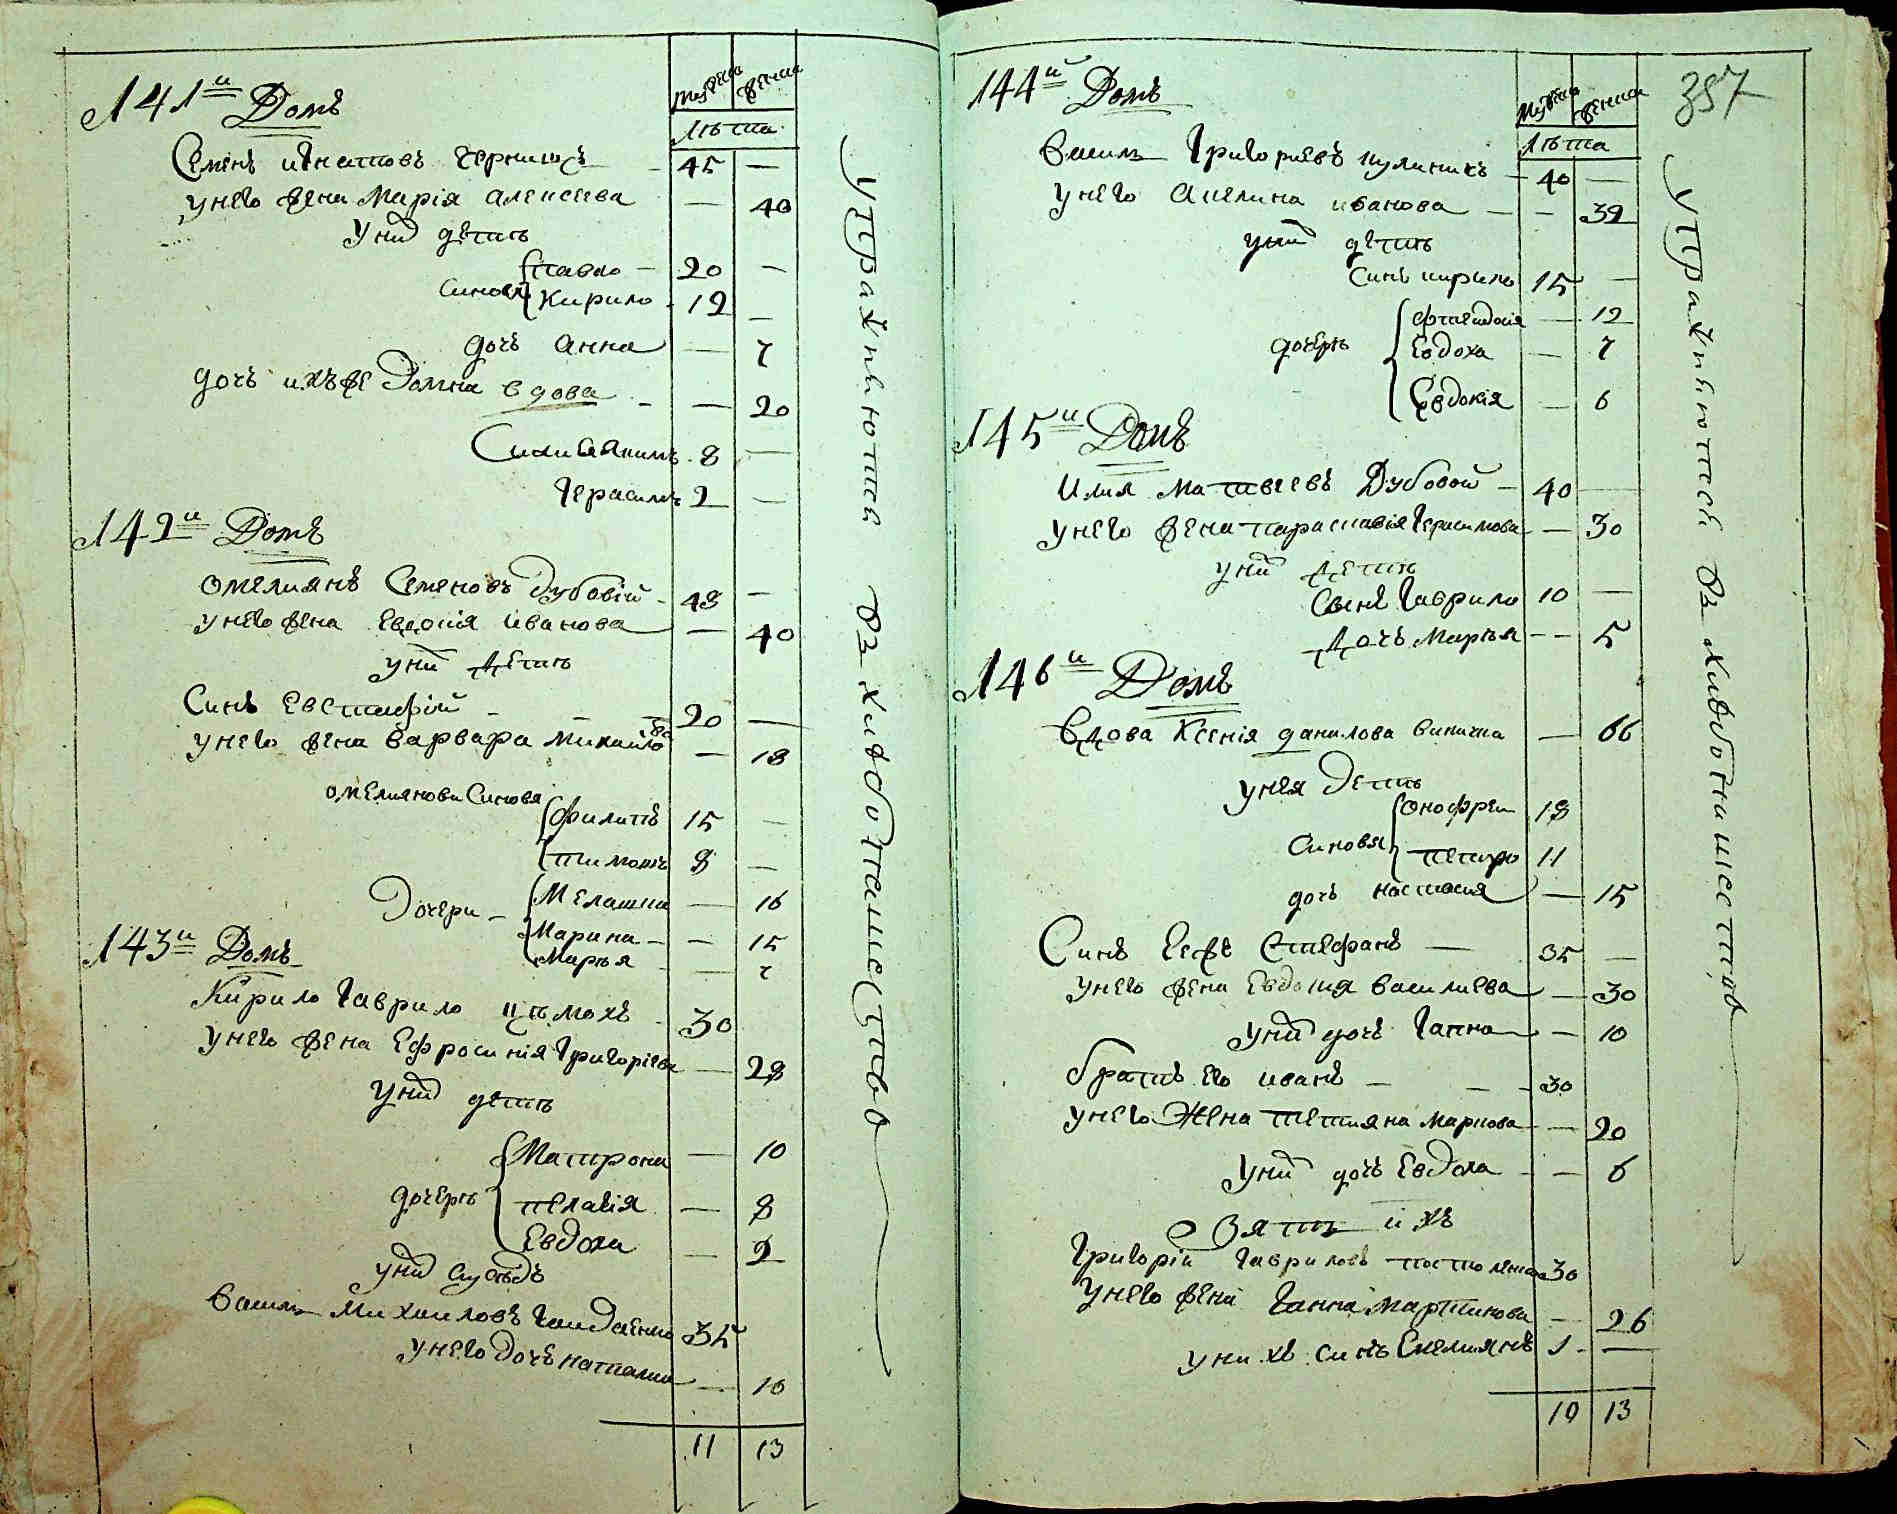 141й Домъ
Муженска
Женска
Лѣта
Семенъ Игнатовъ Чернишъ — 45 —
У него жена Марія Алексеева — 40
У них дети
Синовя Павло — 20 —
Кирило 12 —
дочь Анна — 7
дочь их же Домна вдова — 20
Сини Яким 8 —
Герасимъ 2 —
142й Домъ
Омелиянъ Семеновъ Дубовій 48 —
У него жена Евдокія Иванова — 40
У них дети
Синъ Евстафій 20 —
У него жена Варвара Михайлова — 18
Омелиянови Синовя Филипъ 15 —
Тимошъ 8 —
Дочери Мелашка — 16
Марина — 15
Марья — 7
143й Домъ
Кирило Гаврило 30
У него жена Ефросинія Григоріева — 28
У них дети
дочери Матрона — 10
Пелагія — 8
Евдоха — 2
У них сусѣдъ
Василь Михаиловъ Гайдаенко 35
У него дочь Наталия — 10
11 13
Упражняются в хлѣбопашество
387
144й Домъ
Муженска
Женска
Лѣта
Василь Григориевъ Кулиникъ — 40 —
У него Акелина Иванова — 39
У них дети
Синъ Кирило 15 —
дочери — 12
Евдоха — 7
Евдокія — 6
145й Домъ
Илия Матвеевъ Дубовой — 40 —
У него жена Параскавія Герасимова — 30
У них дети
Синъ Гаврило 10 —
Дочъ Марья — 5
146й Домъ
Вдова Ксенія Данилова — 66
У нея дети
Синовя Онофрей 18
Петро 11
дочь Настасия — 15
Синъ Ееже Стефанъ — 35 —
У него жена Евдокия Василиева — 30
У них дочь Гапка — 10
братъ его Иванъ — 30
У него Жена Тетияна Маркова — 20
У них дочь Евдоха — 6
Зять ихъ
Григорій Гавриловъ 30
У него жена Ганна Мартинова — 26
У них синъ Емелиянъ 1 —
10 13
Упражняются в хлѣбопашество